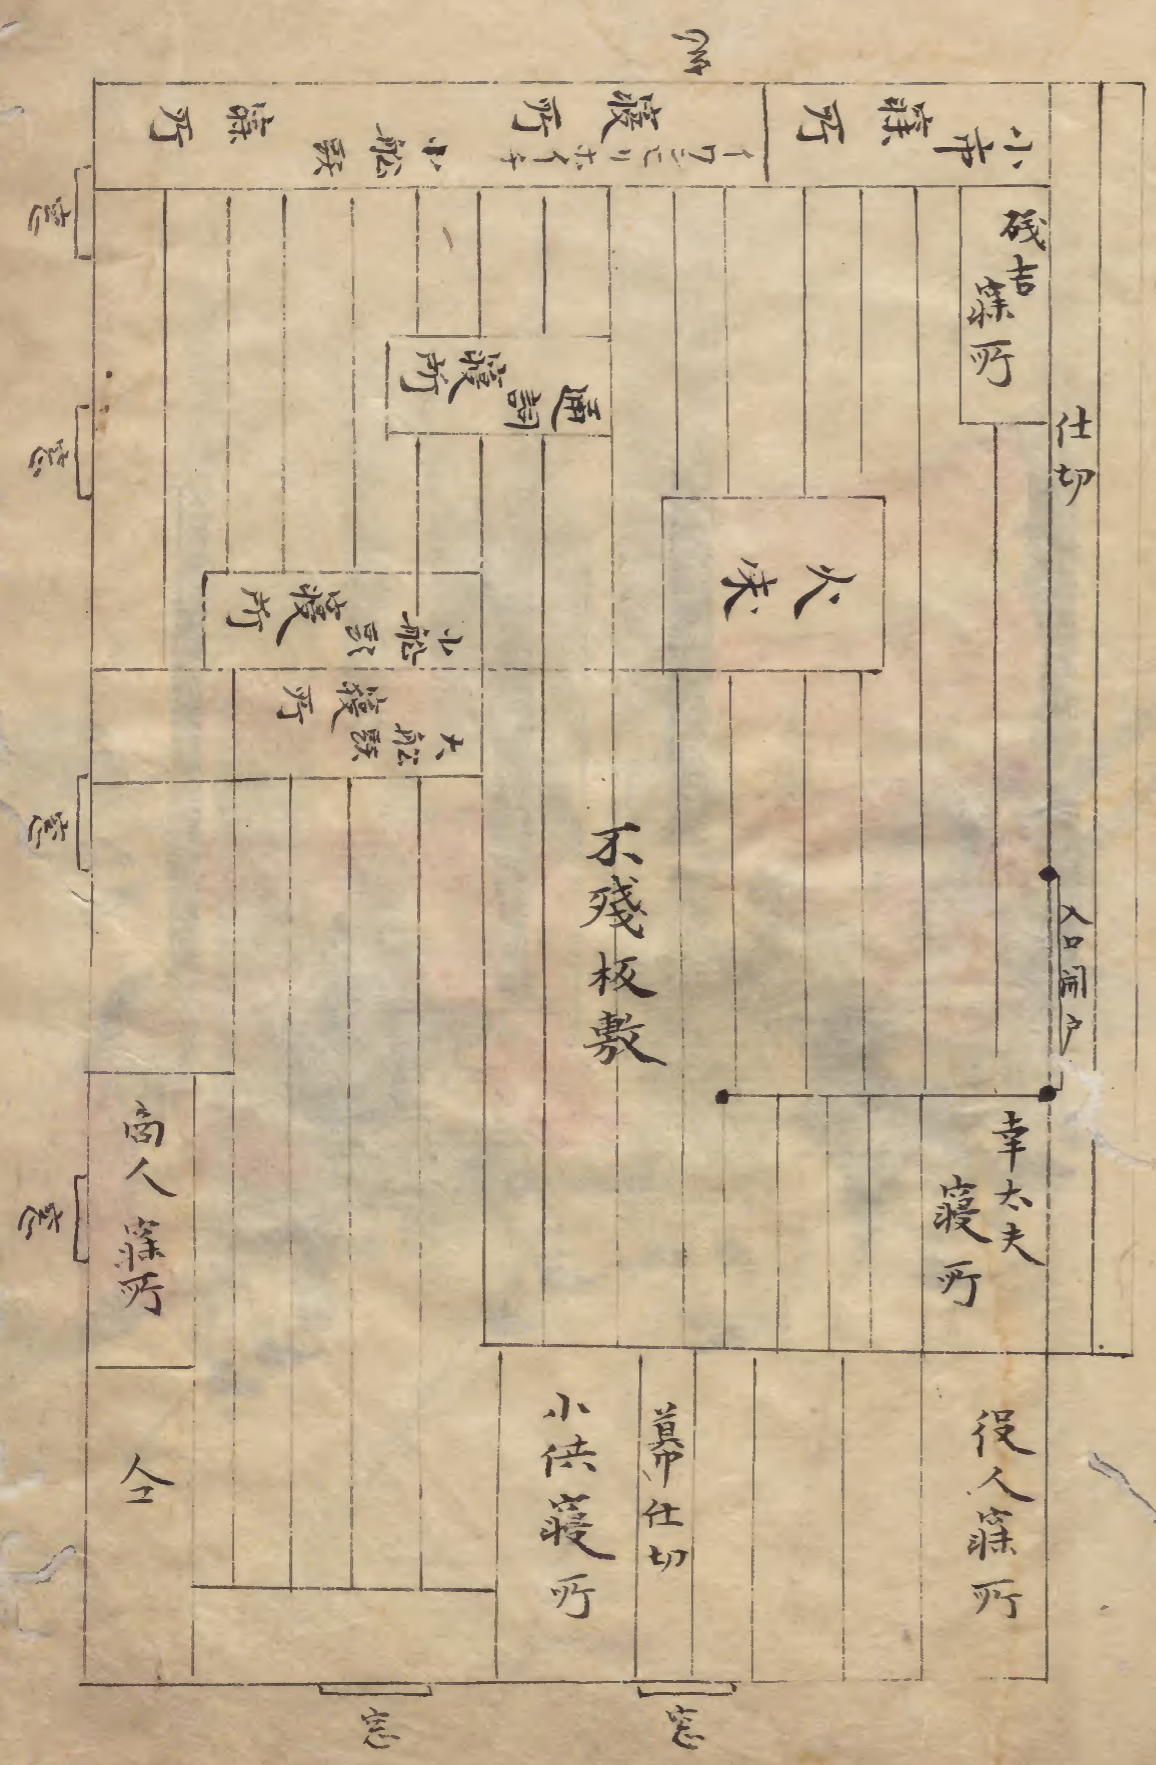 小市寝所
イワン
寝所
小船頭寝所
磯吉寝所
仕切
通詞寝所
火床
小船頭寝所
大船頭寝所
不残板敷
入口開戸
幸太夫寝所
商人寝所
仝
小供寝所
幕仕切
役人寝所
窓
窓
窓
窓
窓
窓